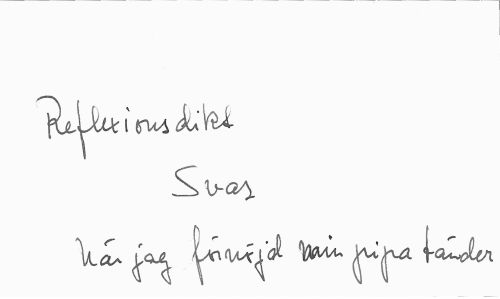 Reflexionsdikt
Svar
När jag förnöjd min pipa tänder